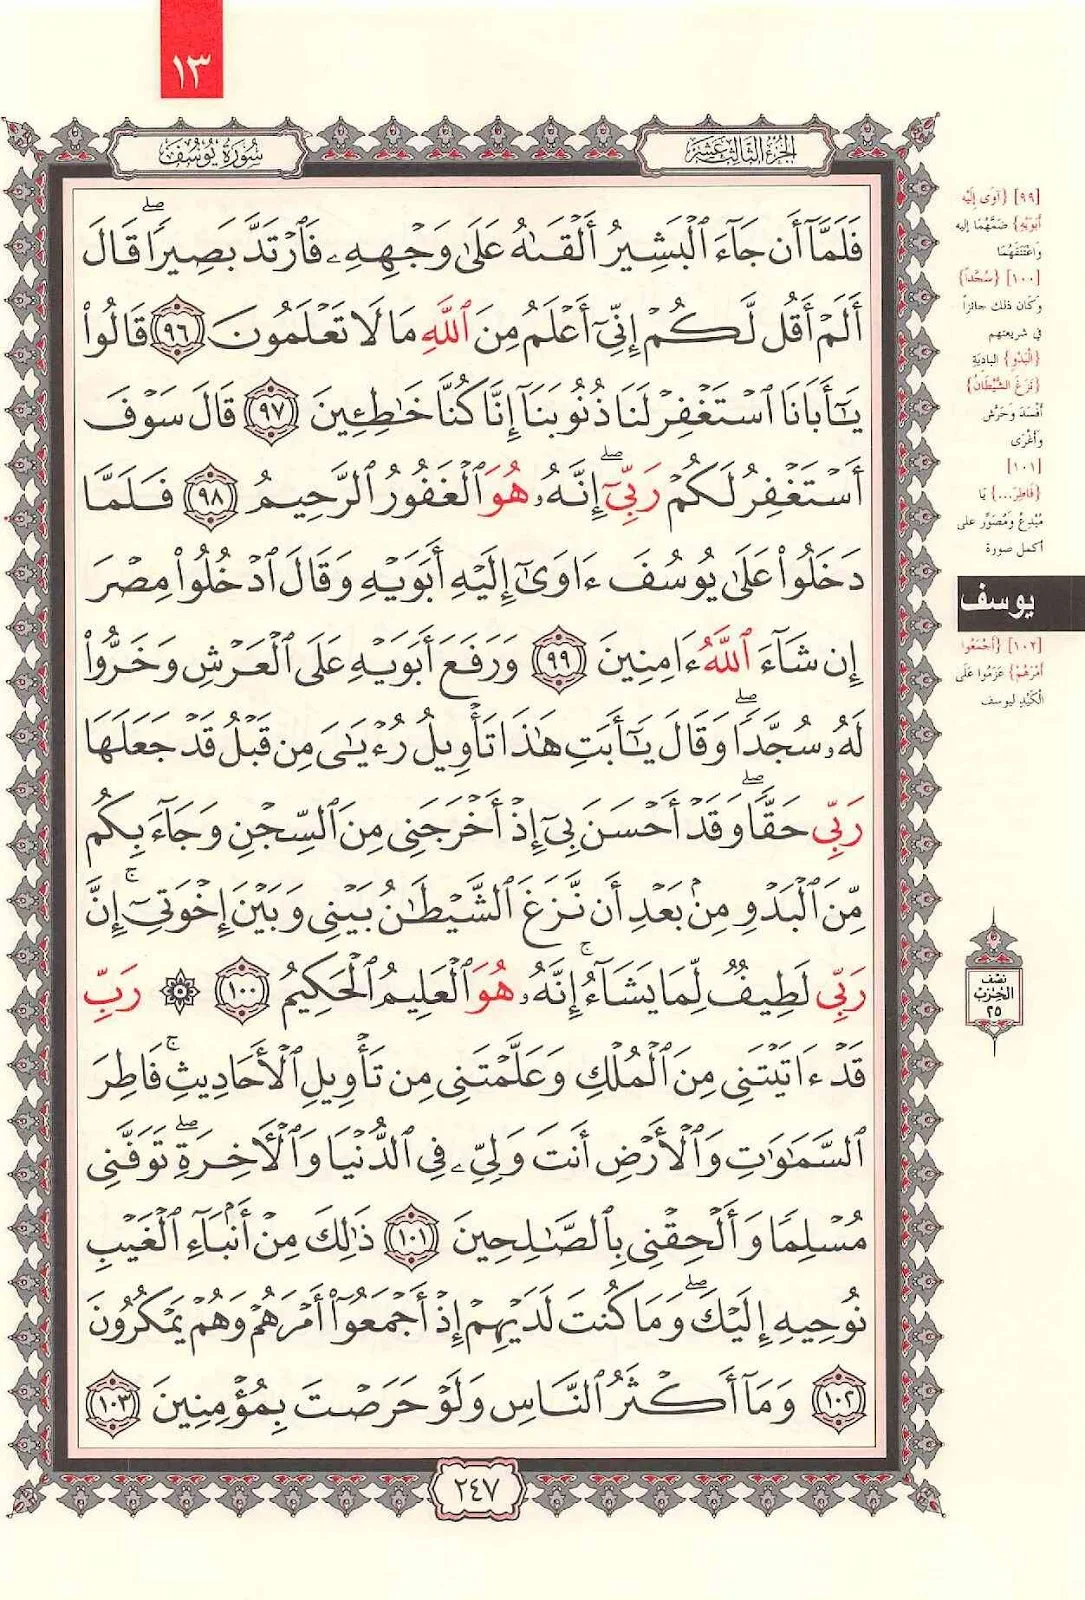 ١٣
سُورَةُ يُوسُفَ
الجُزْءُ الثَّالِثَ عَشَرَ
فَلَمَّآ أَن جَآءَ ٱلْبَشِيرُ أَلْقَىٰهُ عَلَىٰ وَجْهِهِۦ فَٱرْتَدَّ بَصِيرًاۖ قَالَ
أَلَمْ أَقُل لَّكُمْ إِنِّىٓ أَعْلَمُ مِنَ ٱللَّهِ مَا لَا تَعْلَمُونَ ٩٦ قَالُوا۟
يَٰٓأَبَانَا ٱسْتَغْفِرْ لَنَا ذُنُوبَنَآ إِنَّا كُنَّا خَٰطِـِٔينَ ٩٧ قَالَ سَوْفَ
أَسْتَغْفِرُ لَكُمْ رَبِّىٓۖ إِنَّهُۥ هُوَ ٱلْغَفُورُ ٱلرَّحِيمُ ٩٨ فَلَمَّا
دَخَلُوا۟ عَلَىٰ يُوسُفَ ءَاوَىٰٓ إِلَيْهِ أَبَوَيْهِ وَقَالَ ٱدْخُلُوا۟ مِصْرَ
إِن شَآءَ ٱللَّهُ ءَامِنِينَ ٩٩ وَرَفَعَ أَبَوَيْهِ عَلَى ٱلْعَرْشِ وَخَرُّوا۟
لَهُۥ سُجَّدًاۖ وَقَالَ يَٰٓأَبَتِ هَٰذَا تَأْوِيلُ رُءْيَٰىَ مِن قَبْلُ قَدْ جَعَلَهَا
رَبِّى حَقًّاۖ وَقَدْ أَحْسَنَ بِىٓ إِذْ أَخْرَجَنِى مِنَ ٱلسِّجْنِ وَجَآءَ بِكُم
مِّنَ ٱلْبَدْوِ مِنۢ بَعْدِ أَن نَّزَغَ ٱلشَّيْطَٰنُ بَيْنِى وَبَيْنَ إِخْوَتِىٓۚ إِنَّ
رَبِّى لَطِيفٌ لِّمَا يَشَآءُۚ إِنَّهُۥ هُوَ ٱلْعَلِيمُ ٱلْحَكِيمُ ١٠٠ ۞ رَبِّ
قَدْ ءَاتَيْتَنِى مِنَ ٱلْمُلْكِ وَعَلَّمْتَنِى مِن تَأْوِيلِ ٱلْأَحَادِيثِۚ فَاطِرَ
ٱلسَّمَٰوَٰتِ وَٱلْأَرْضِ أَنتَ وَلِىِّۦ فِى ٱلدُّنْيَا وَٱلْـَٔاخِرَةِۖ تَوَفَّنِى
مُسْلِمًا وَأَلْحِقْنِى بِٱلصَّٰلِحِينَ ١٠١ ذَٰلِكَ مِنْ أَنۢبَآءِ ٱلْغَيْبِ
نُوحِيهِ إِلَيْكَۖ وَمَا كُنتَ لَدَيْهِمْ إِذْ أَجْمَعُوٓا۟ أَمْرَهُمْ وَهُمْ يَمْكُرُونَ
١٠٢ وَمَآ أَكْثَرُ ٱلنَّاسِ وَلَوْ حَرَصْتَ بِمُؤْمِنِينَ ١٠٣
٢٤٧
[٩٩] {آوَى إِلَيْهِ
أَبَوَيْهِ} ضَمَّهُمَا إليه
وَاعْتَنَقَهُمَا
[١٠٠] {سُجَّداً}
وَكَان ذلك جائزاً
في شريعتهم
{الْبَدْوِ} الباديَةِ
{نَزَغَ الشَّيْطَانُ}
أَفْسَدَ وَحَرَّشَ
وَأَغْرَى
[١٠١]
{فَاطِرَ...} يَا
مُبْدِعَ وَمُصَوِّرَ على
أكمل صورة
يوسف
[١٠٢] {أَجْمَعُوا
أَمْرَهُمْ} عَزَمُوا عَلَى
الْكَيْدِ ليوسف
نصف
الحزب
٢٥